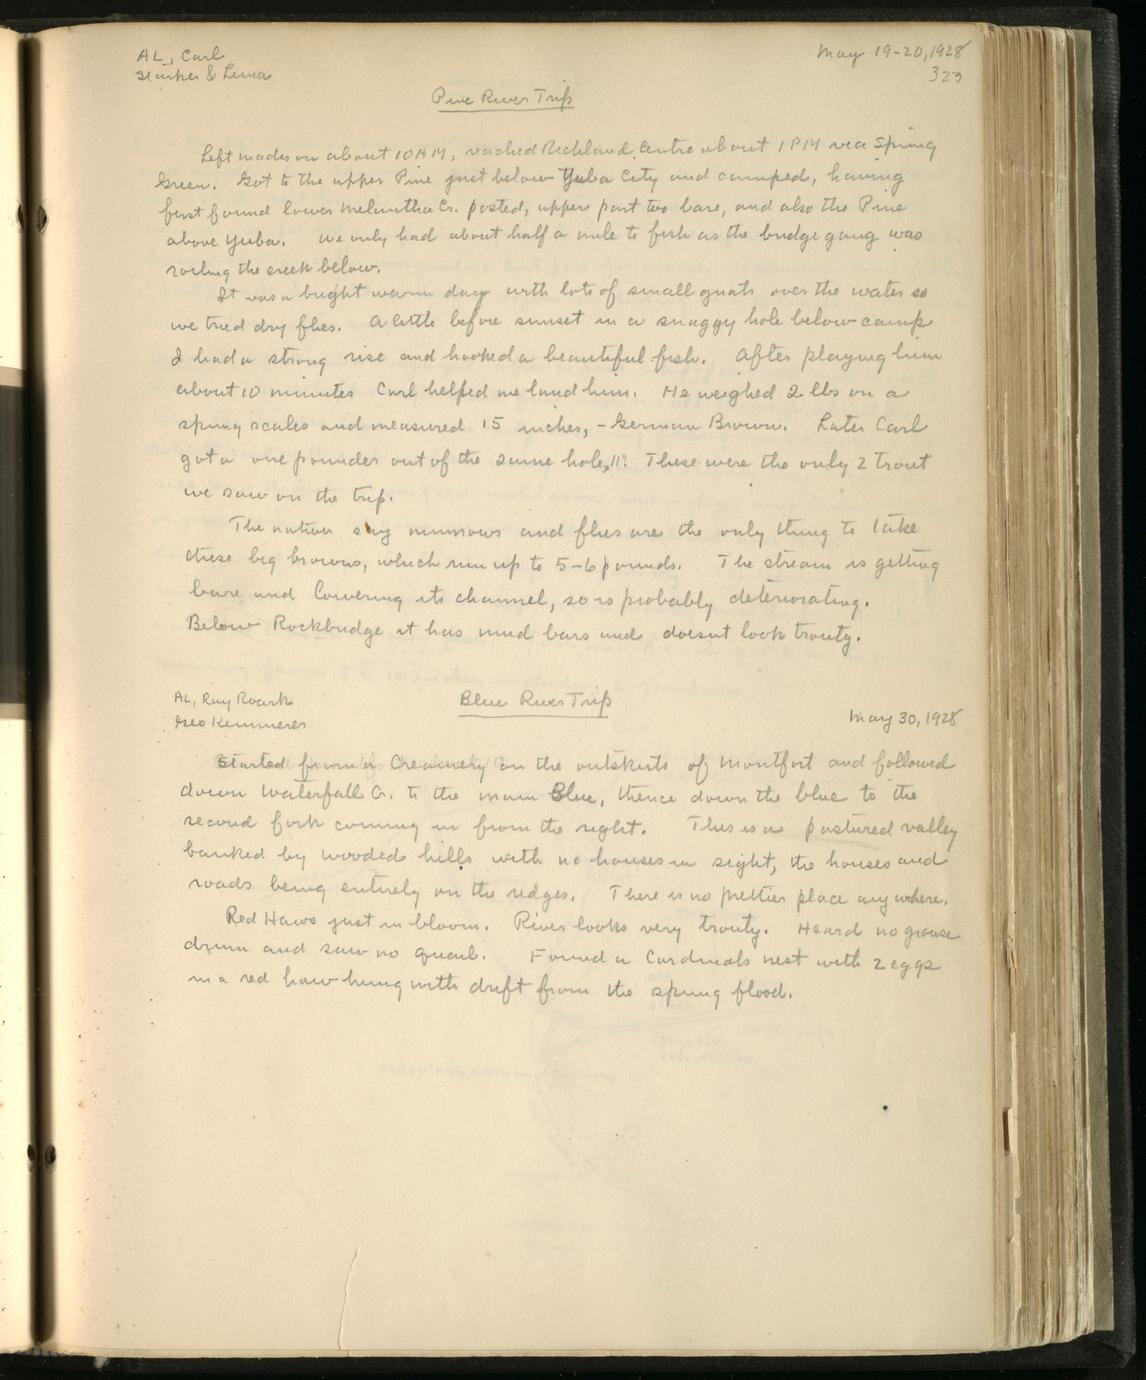 AL, Carl
Starker & Luna
May 19-20, 1928
323
Pine River Trip
Left Madison about 10 AM, reached Richland Centre about 1 PM via Spring
Green. Got to the upper Pine just below Yuba City and camped, having
first found lower Melancthon Cr. posted, upper part too bare, and also the Pine
above Yuba. We only had about half a mile to fish as the bridge gang was
roiling the creek below.
It was a bright warm day with lots of small gnats over the water so
we tried dry flies. A little before sunset in a snaggy hole below camp
I had a strong rise and hooked a beautiful fish. After playing him
about 10 minutes Carl helped me land him. He weighed 2 lbs on a
spring scales and measured 15 inches, - German Brown. Later Carl
got a one pounder out of the same hole, 11". These were the only 2 trout
we saw on the trip.
The natives say minnows and flies are the only thing to take
these big browns, which run up to 5-6 pounds. The stream is getting
bare and lowering its channel, so is probably deteriorating.
Below Rockbridge it has mud bars and doesnt look trouty.
AL, Ray Roark
Geo Kemmerer
Blue River Trip
May 30, 1928
Started from a Creamery on the outskirts of Montfort and followed
down Waterfall Cr. to the main Blue, thence down the blue to the
second fork coming in from the right. This is a pastured valley
banked by wooded hills with no houses in sight, the houses and
roads being entirely on the ridges. There is no prettier place anywhere.
Red Haws just in bloom. River looks very trouty. Heard no grouse
drum and saw no quail. Found a Cardinals nest with 2 eggs
in a red haw hung with drift from the spring flood.